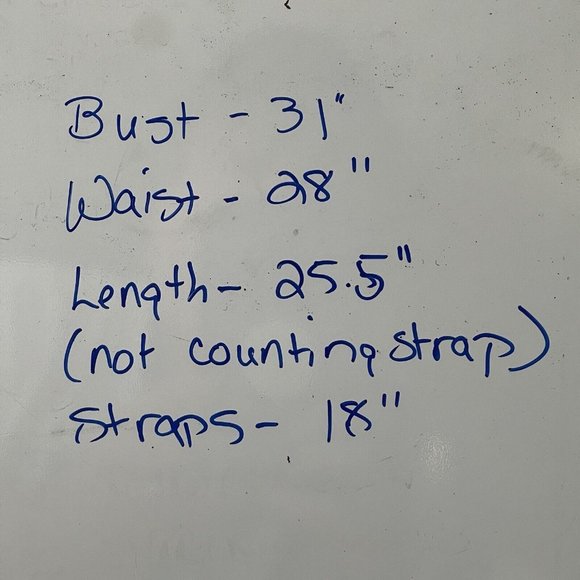 Bust - 31"
Waist - 28"
Length - 25.5"
(not counting strap)
Straps - 18"